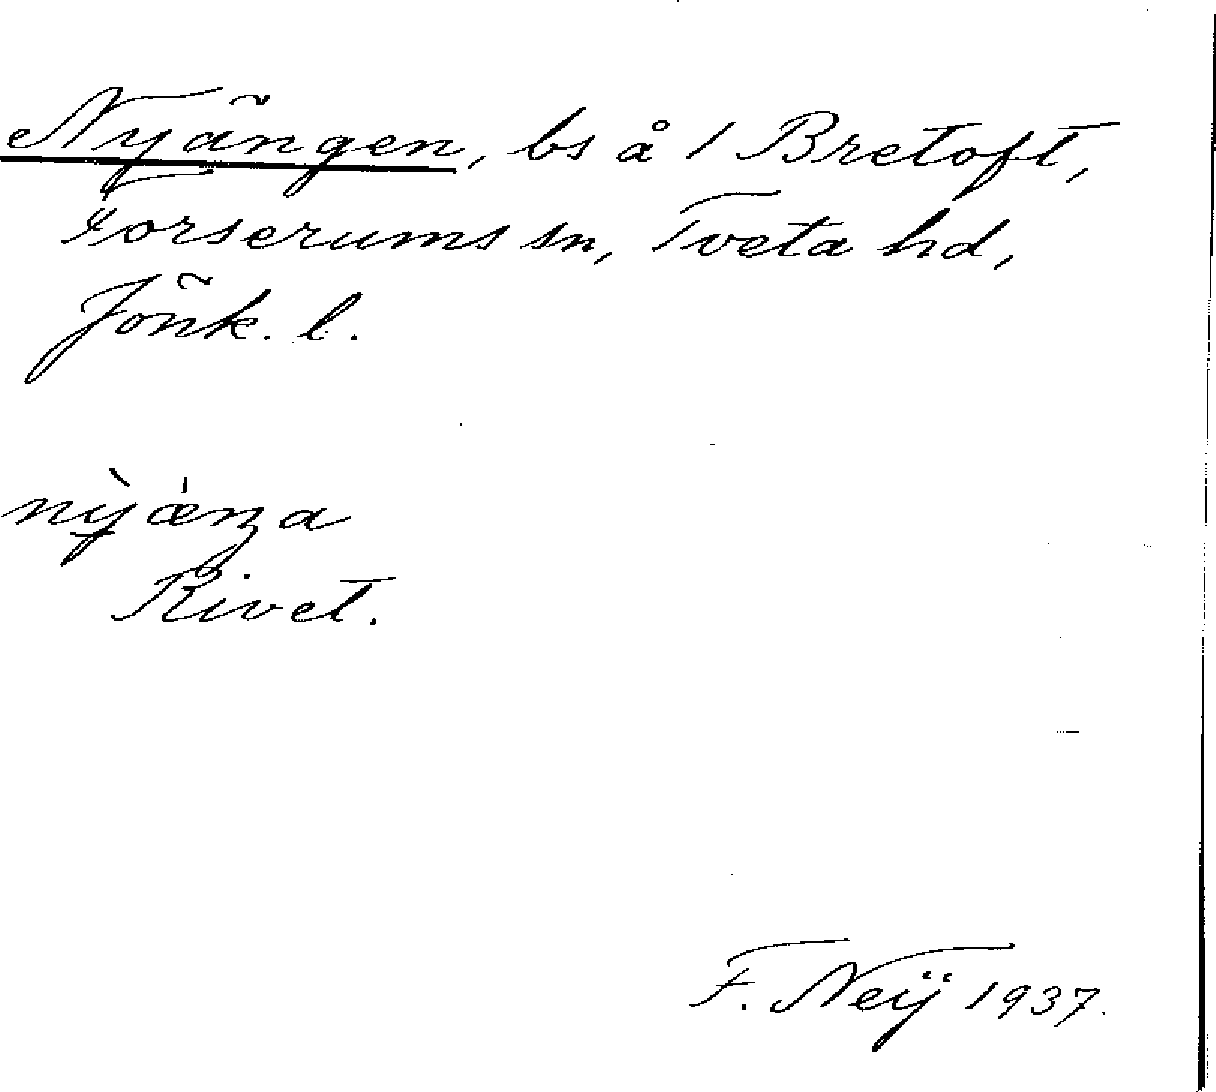 Nyängen, bs å 1 Bretoft,
Forserums sn, Tveta hd,
Jönk. l.
nỳæ̍ŋa
Rivet.
F. Neij 1937.